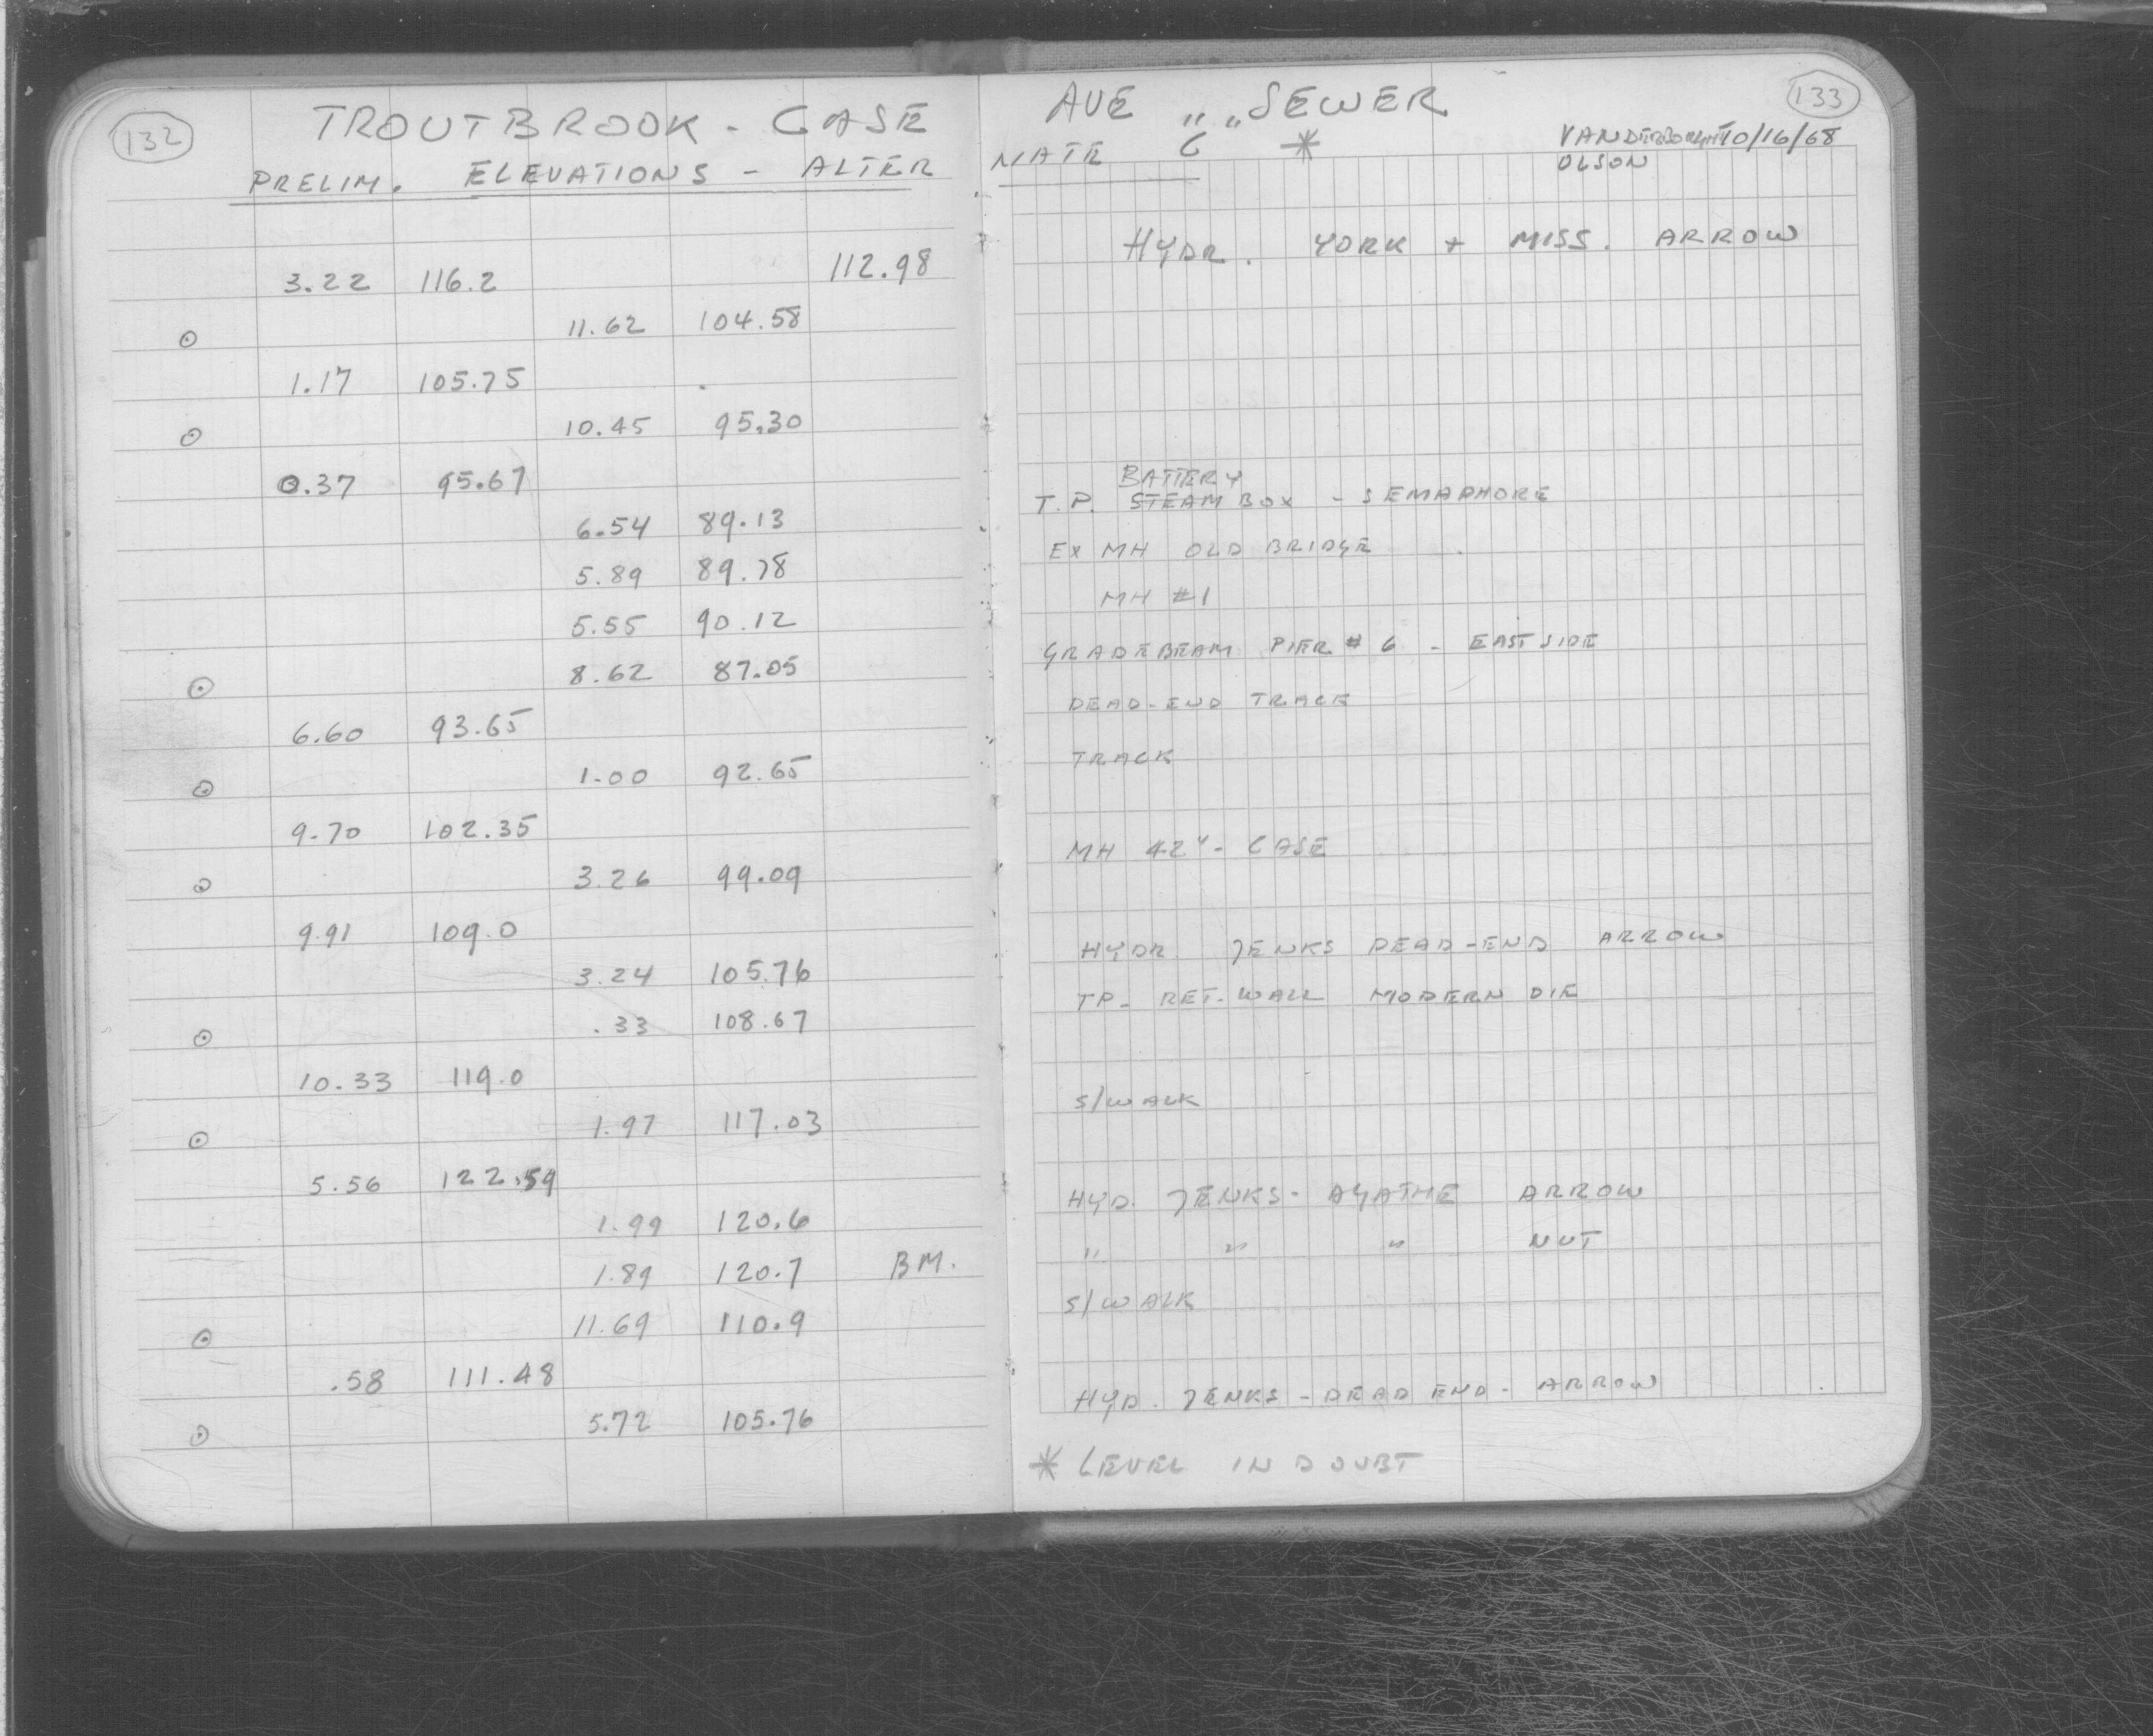 132
TROUTBROOK - CASE
PRELIM. ELEVATIONS - ALTER
112.98
3.22 116.2
⊙ 11.62 104.58
1.17 105.75
⊙ 10.45 95.30
0.37 95.67
6.54 89.13
5.89 89.78
5.55 90.12
⊙ 8.62 87.05
6.60 93.65
⊙ 1.00 92.65
9.70 102.35
⊙ 3.26 99.09
9.91 109.0
3.24 105.76
⊙ .33 108.67
10.33 119.0
⊙ 1.97 117.03
5.56 122.59
1.99 120.6
1.89 120.7 BM.
⊙ 11.69 110.9
.58 111.48
⊙ 5.72 105.76
133
AVE SEWER
NATE "C" *
10/16/68
OLSON
HYDR. YORK + MISS. ARROW
BATTERY
T.P. STEAM BOX - SEMAPHORE
EX MH OLD BRIDGE
MH #1
GRADEBEAM PIER # 6 - EAST SIDE
DEAD-END TRACK
TRACK
MH 42" - CASE
HYDR. JENKS DEAD-END ARROW
TP- RET. WALL MODERN DIE
S/WALK
HYD. JENKS - AGATHE ARROW
" " " NUT
S/WALK
HYD. JENKS - DEAD END - ARROW
* LEVEL IN DOUBT